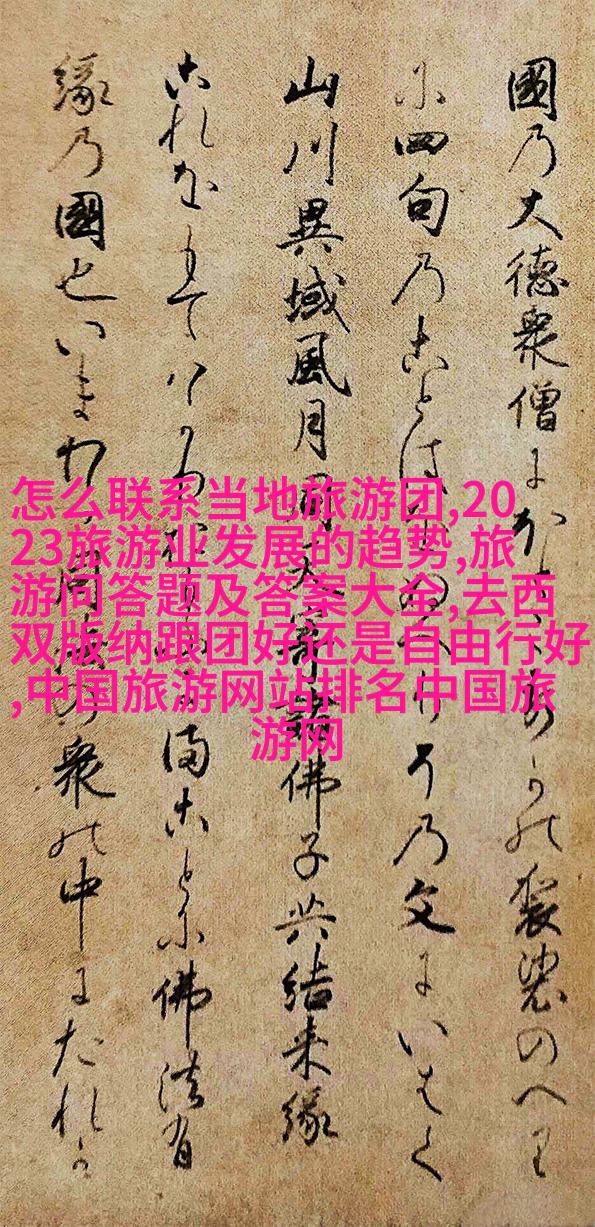 國乃大德衆僧に袈裟のへり
に四句乃ことは乃文にいはく
山川異域風月同天寄諸佛子共結来縁
これをもて佛法有
縁乃國也いま衆の中にたれか
怎么联系当地旅游团,20
23旅游业发展的趋势,旅
游问答题及答案大全,去西
双版纳跟团好还是自由行好
,中国旅游网站排名中国旅
游网